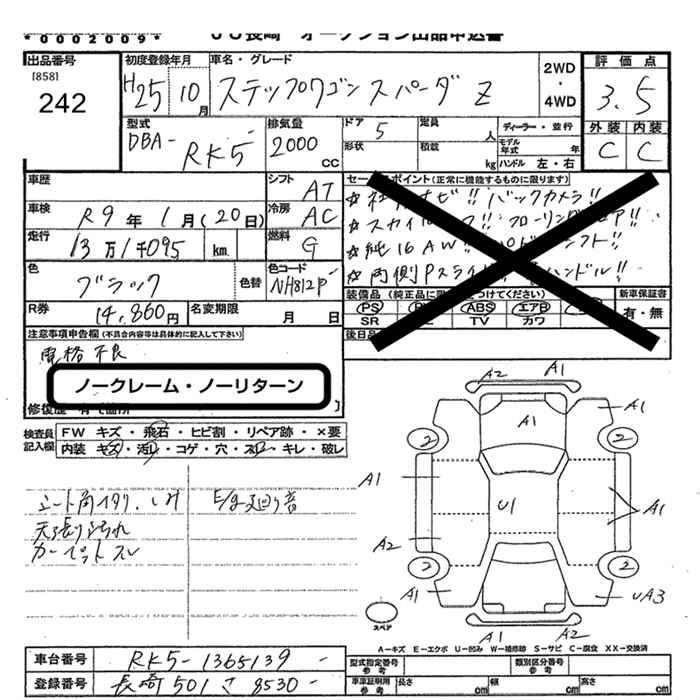 *0002009* JU長崎 オークション出品申込書
出品番号 初度登録年月 車名・グレード 評価点
[858]
242
H25 10月 ステップワゴンスパーダ Z
2WD・4WD
3.5
外装 内装
C C
型式 排気量 ドア 定員 ディーラー・並行
DBA- RK5 2000cc 5 人
形状 積載 kg モデル年式 年 ハンドル 左・右
車歴 シフト AT
セールスポイント(正常に機能するものに限ります)
車検 R9年1月(20日) 冷房 AC
走行 13万1千095 km 燃料 G
色 ブラック 色替 色コード NH812P
☆ バックカメラ!!
☆スカイ
☆純16AW!!
☆両側Pスライド ハンドル!!
R券 14,860円 名変期限 月 日
装備品 新車保証書
PS ABS エアB 有・無
SR TV カワ
後日品
注意事項申告欄(不具合内容等は具体的に記入して下さい)
電格不良
ノークレーム・ノーリターン
修復歴
検査員記入欄
FW キズ・飛石・ヒビ割・リペア跡・×要
内装 キズ・汚れ・コゲ・穴・スレ・キレ・破レ
シート角イタリ、しみ E/g廻り音
天張り汚れ
カーペットスレ
A2 A1
A1 A1
2 2
A1 U1 A1
A2
2 2
A1 UA3
A1 A2
スペア
A-キズ E-エクボ U-凹み W-補修跡 S-サビ C-腐食 XX-交換済
車台番号 RK5-1365139
登録番号 長崎501さ8530
型式指定番号 参考 類別区分番号 参考
車庫証明用 参考 長さ cm 幅 cm 高さ cm